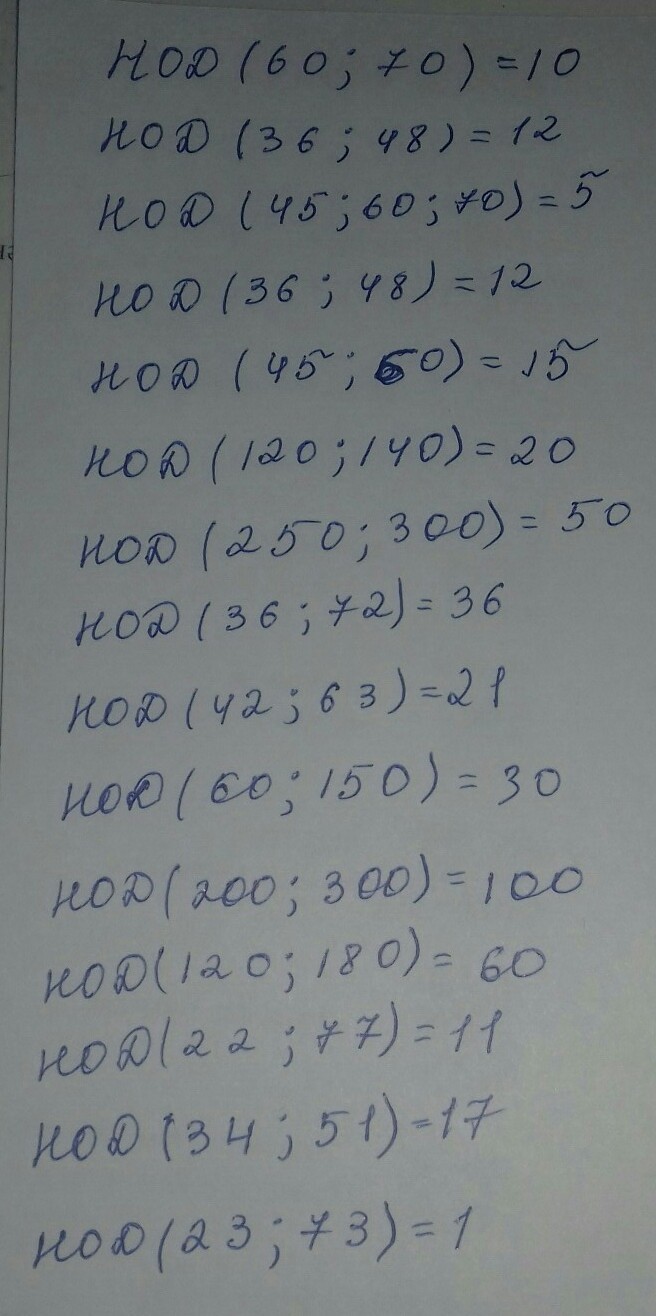 НОД (60; 70) = 10
НОД (36; 48) = 12
НОД (45; 60; 70) = 5
НОД (36; 48) = 12
НОД (45; 60) = 15
НОД (120; 140) = 20
НОД (250; 300) = 50
НОД (36; 72) = 36
НОД (42; 63) = 21
НОД (60; 150) = 30
НОД (200; 300) = 100
НОД (120; 180) = 60
НОД (22; 77) = 11
НОД (34; 51) = 17
НОД (23; 73) = 1